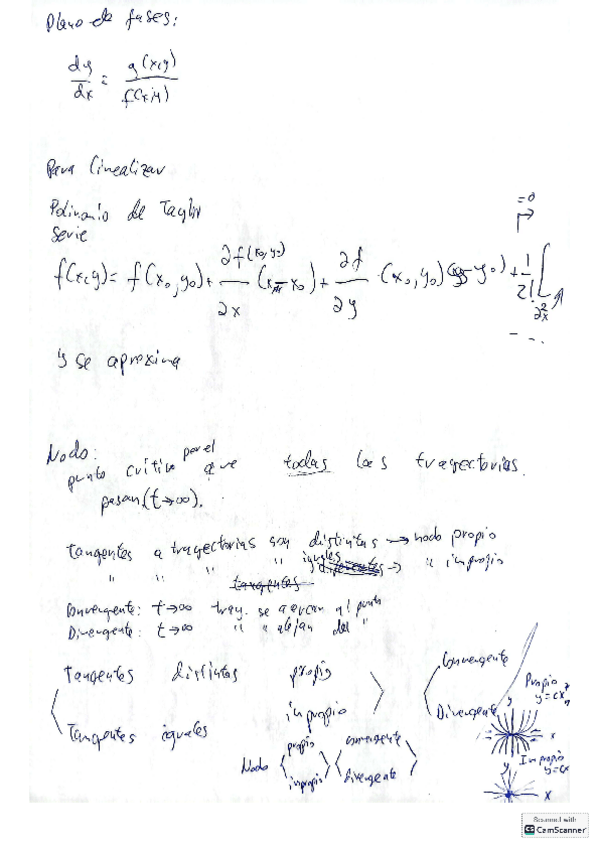 Plano de fases:
dy/dx = g(x,y)/f(x,y)
Para linealizar
Polinomio de Taylor
Serie
=0
f(x,y) = f(x₀,y₀) + ∂f(x₀,y₀)/∂x (x-x₀) + ∂f/∂y (x₀,y₀)(y-y₀) + 1/2! [
∂²x
- - -
y se aproxima
Nodo: punto crítico por el que todas las trayectorias
pasan (t→∞).
Tangentes a trayectorias son distintas → nodo propio
" " " " iguales → " impropio
tangentes
Convergente: t→∞ tray. se acercan al punto
Divergente: t→∞ " " alejan del "
Tangentes distintas propio
impropio
Tangentes iguales
Convergente
Divergente
Nodo propio convergente
impropio divergente
Propio
y=cx²
y
x
Impropio
y=cx
y
x
Scanned with
CS CamScanner